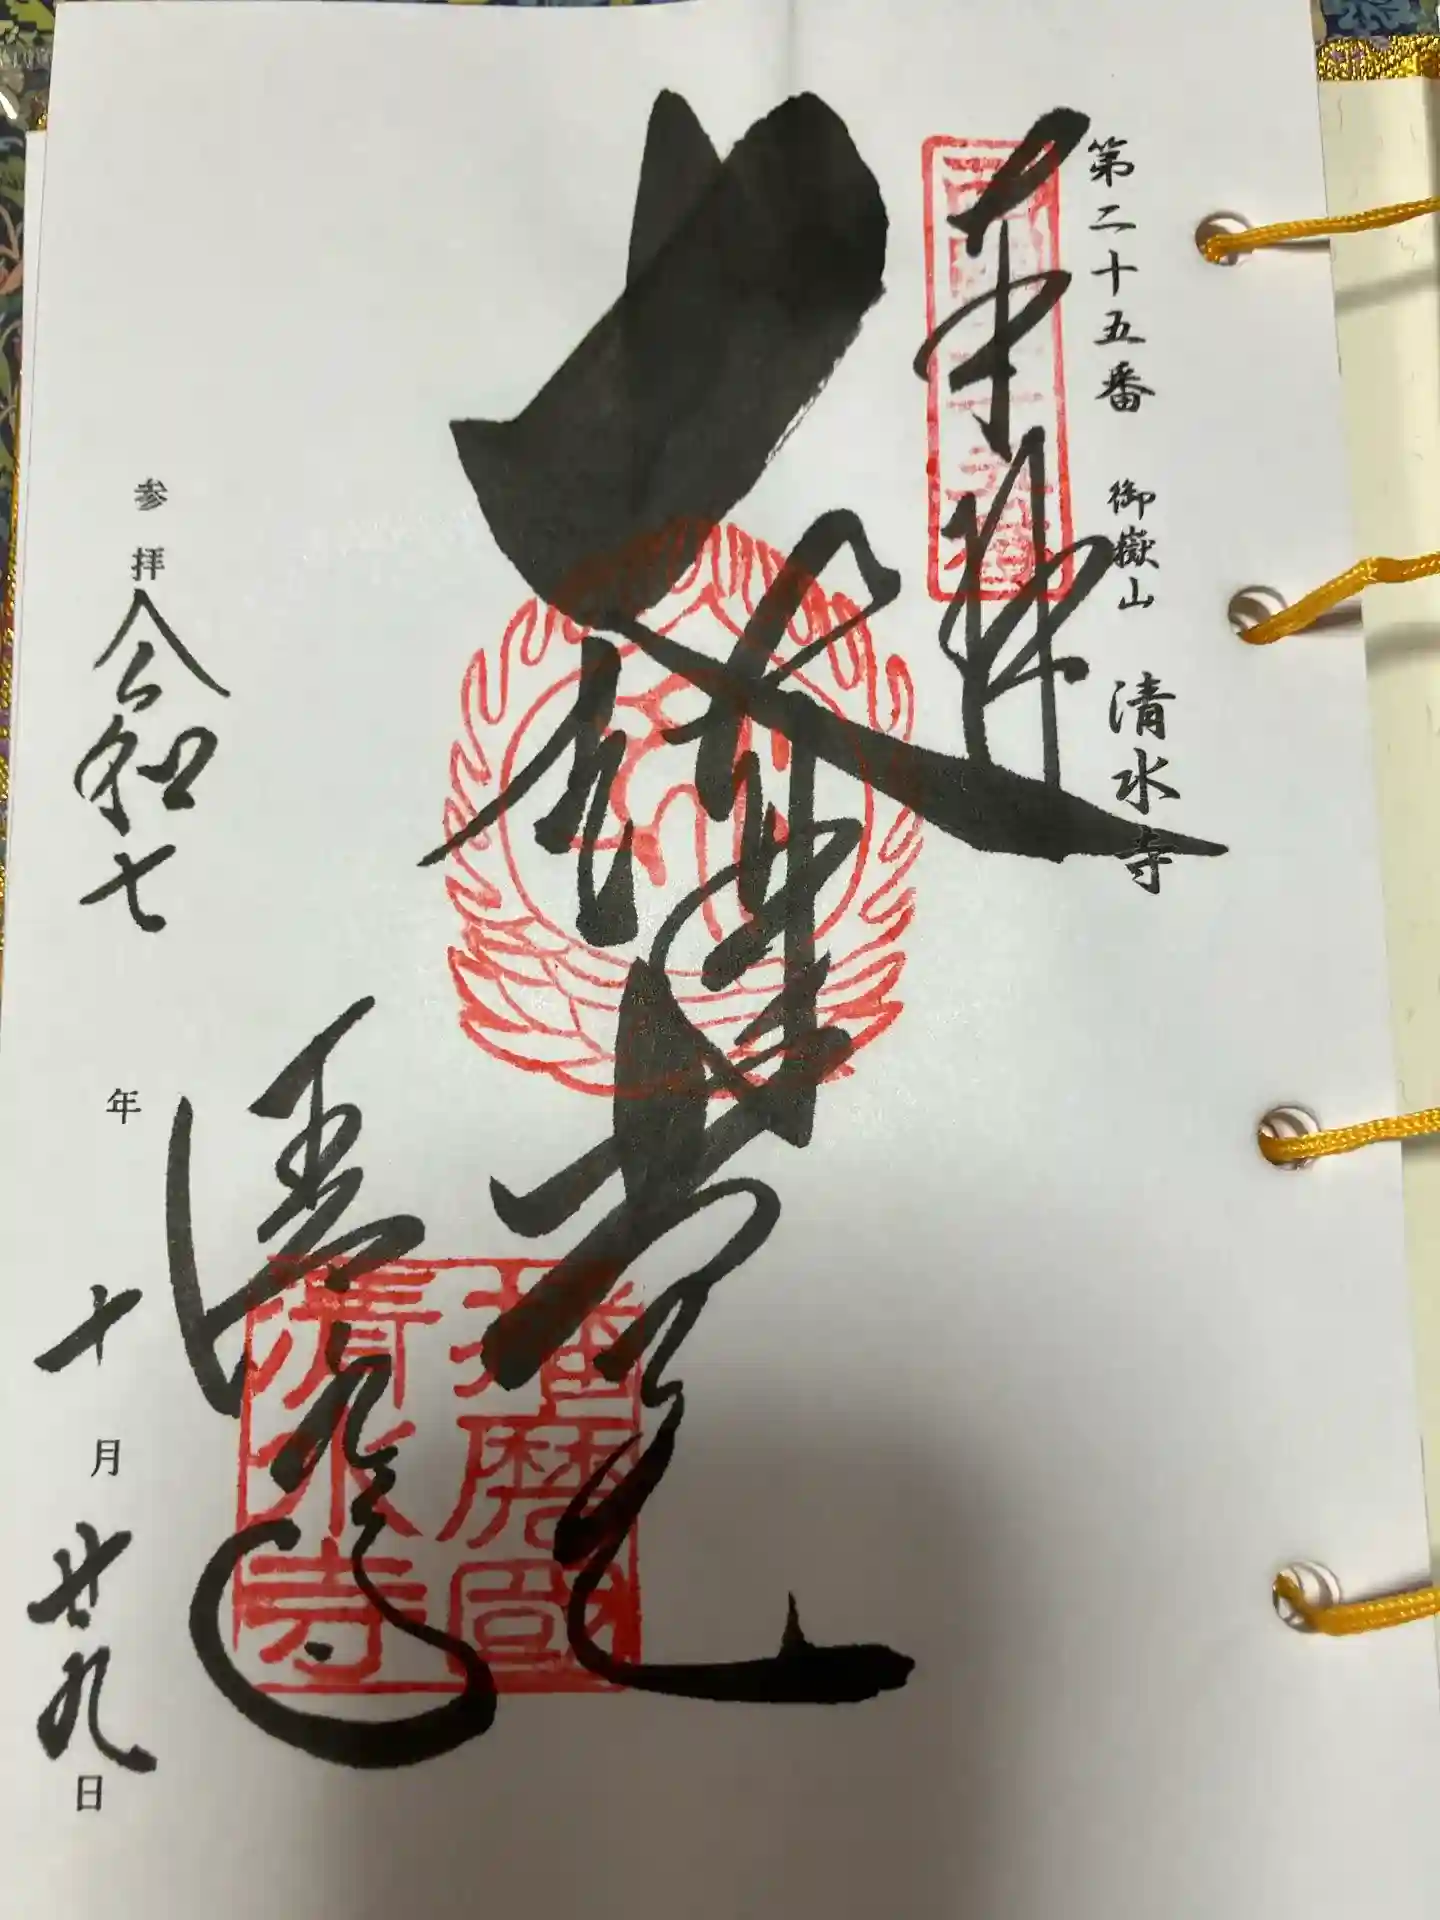 第二十五番 御嶽山 清水寺
奉拝
大講堂
清水寺
播磨国
清水寺
参拝 令和七年 十月 廿九日